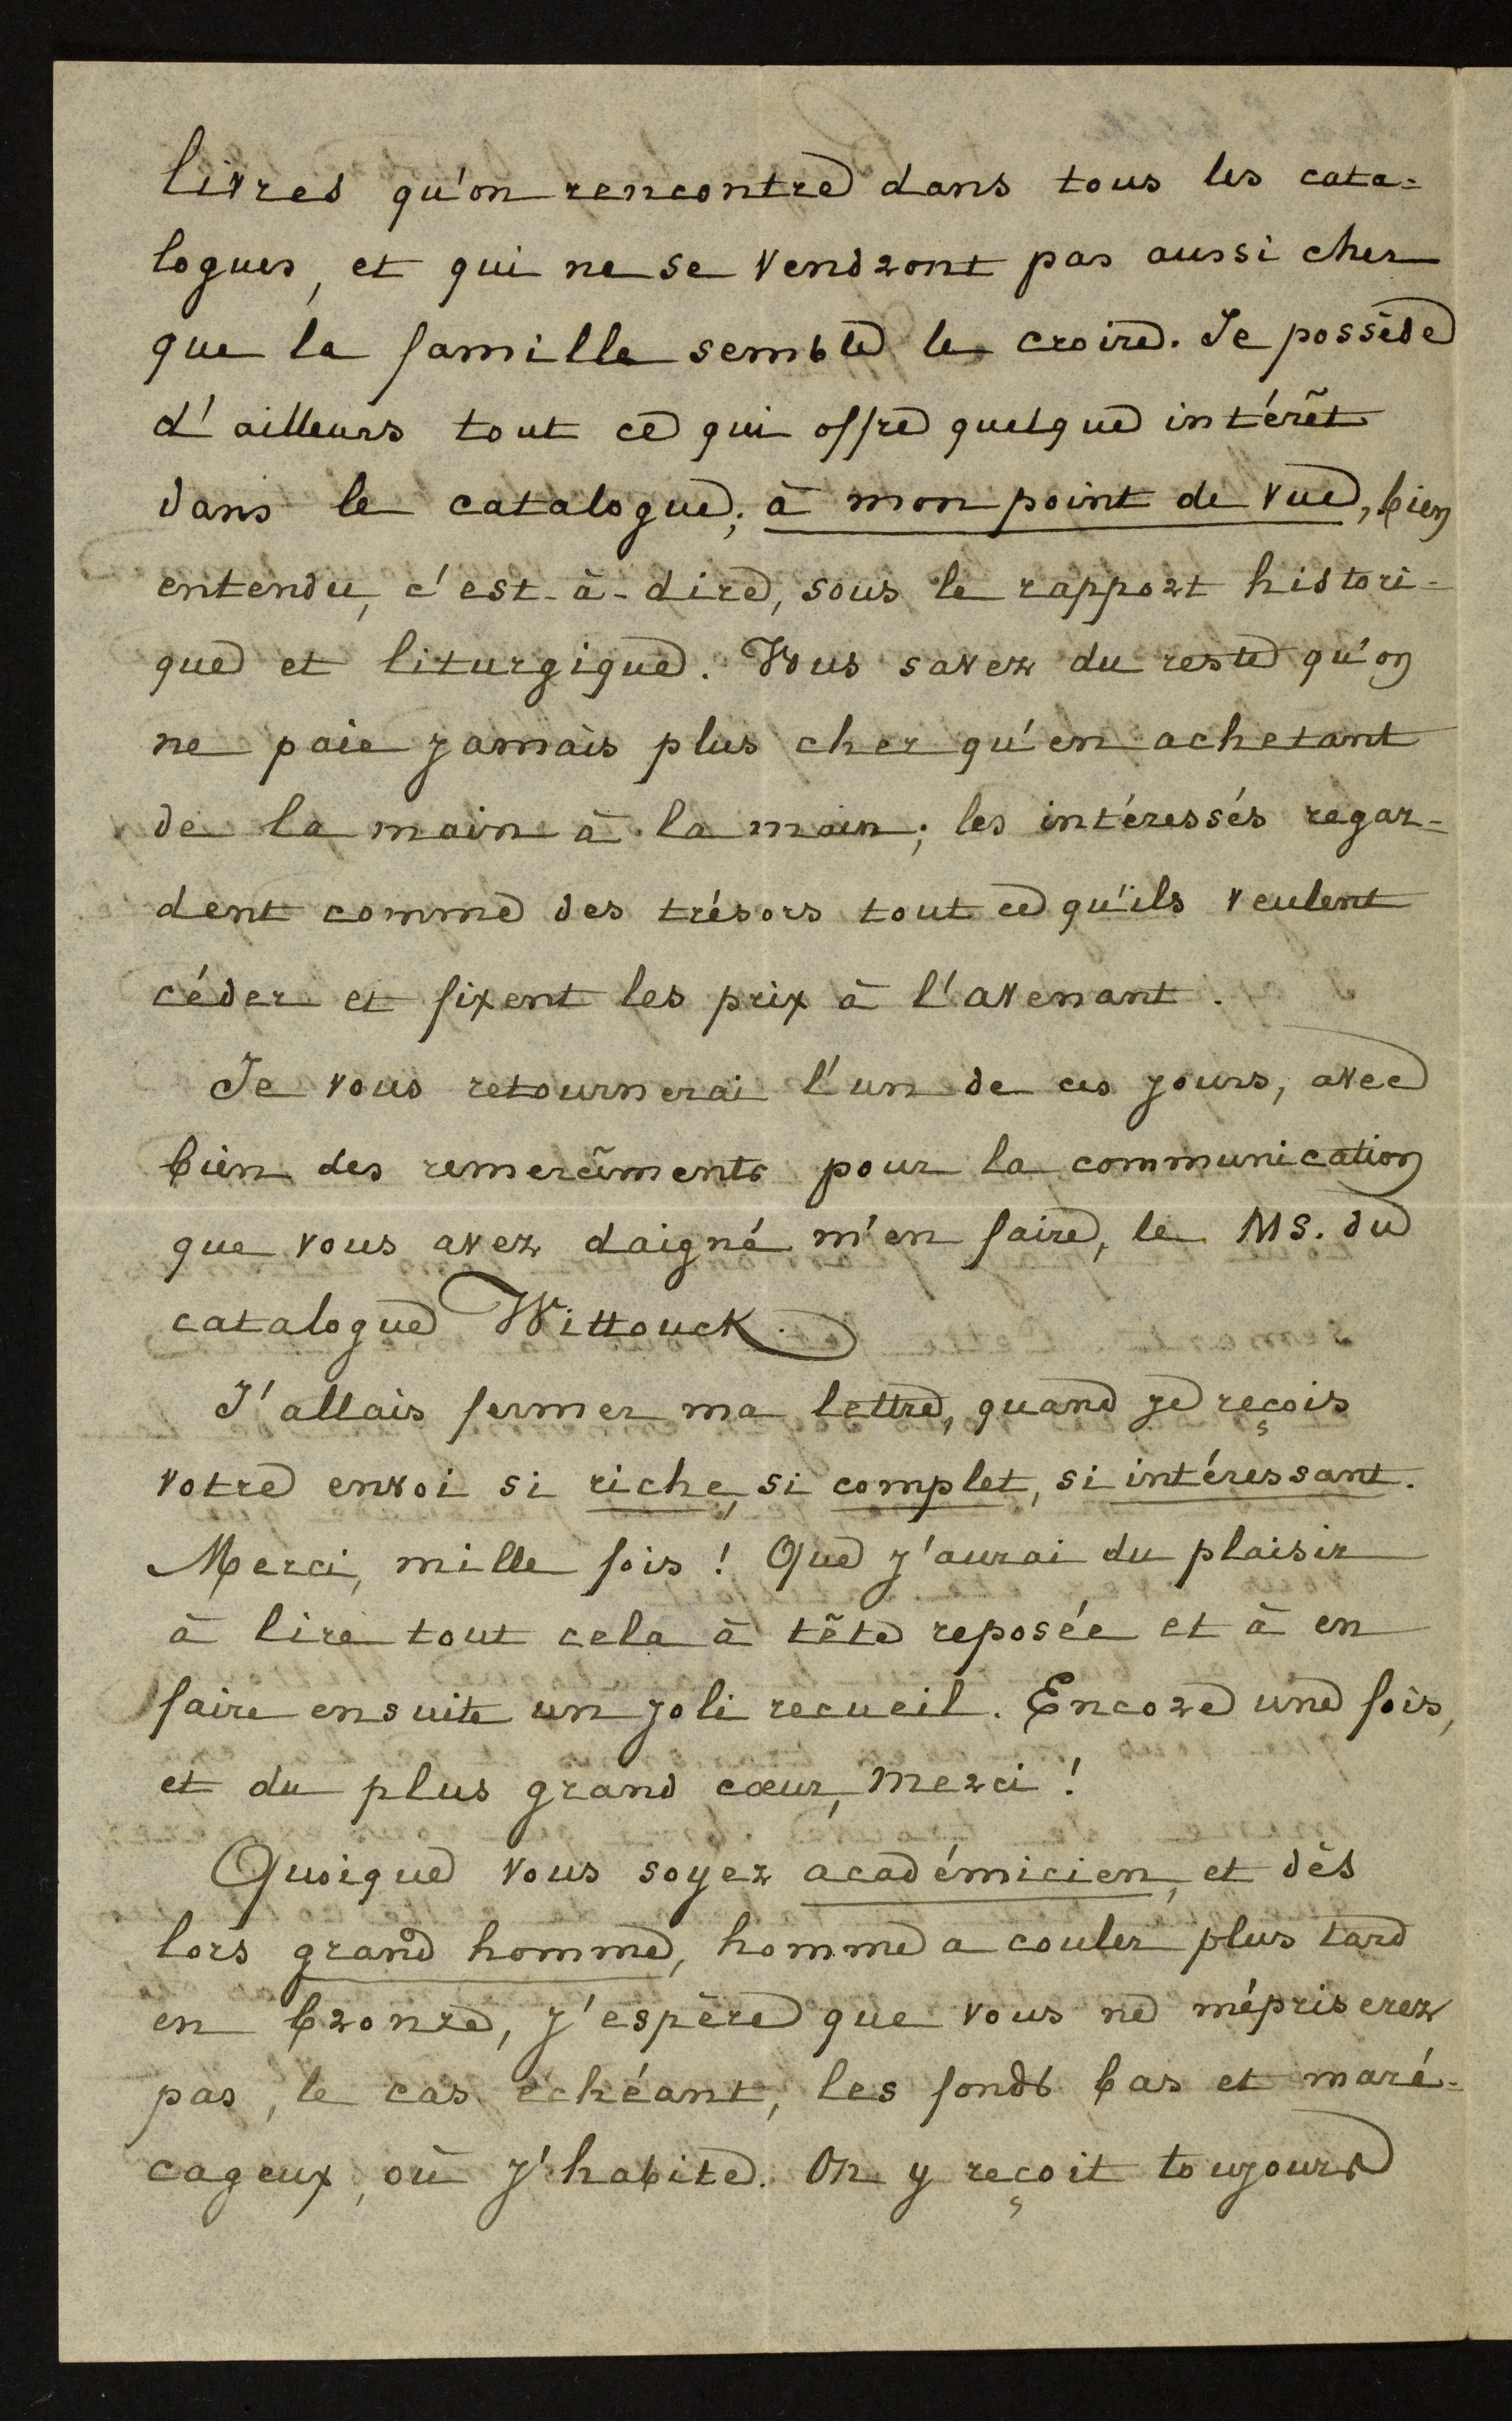 livres qu'on rencontre dans tous les cata-
logues, et qui ne se vendront pas aussi cher
que la famille semble le croire. Je possède
d'ailleurs tout ce qui offre quelque intérêt
dans le catalogue; à mon point de vue, bien
entendu, c'est-à-dire, sous le rapport histori-
que et liturgique. Vous savez du reste qu'on
ne paie jamais plus cher qu'en achetant
de la main à la main; les intéressés regar-
dent comme des trésors tout ce qu'ils veulent
céder et fixent les prix à l'avenant.
Je vous retournerai l'un de ces jours, avec
bien des remercîments pour la communication
que vous avez daigné m'en faire, le MS. du
catalogue Wittouck.
J'allais fermer ma lettre, quand je reçois
votre envoi si riche, si complet, si intéressant.
Merci, mille fois ! Que j'aurai du plaisir
à lire tout cela à tête reposée et à en
faire ensuite un joli recueil. Encore une fois,
et du plus grand cœur, merci !
Quoique vous soyez académicien, et dès
lors grand homme, homme a couler plus tard
en bronze, j'espère que vous ne mépriserez
pas, le cas échéant, les fonds bas et maré-
cageux, où j'habite. On y reçoit toujours